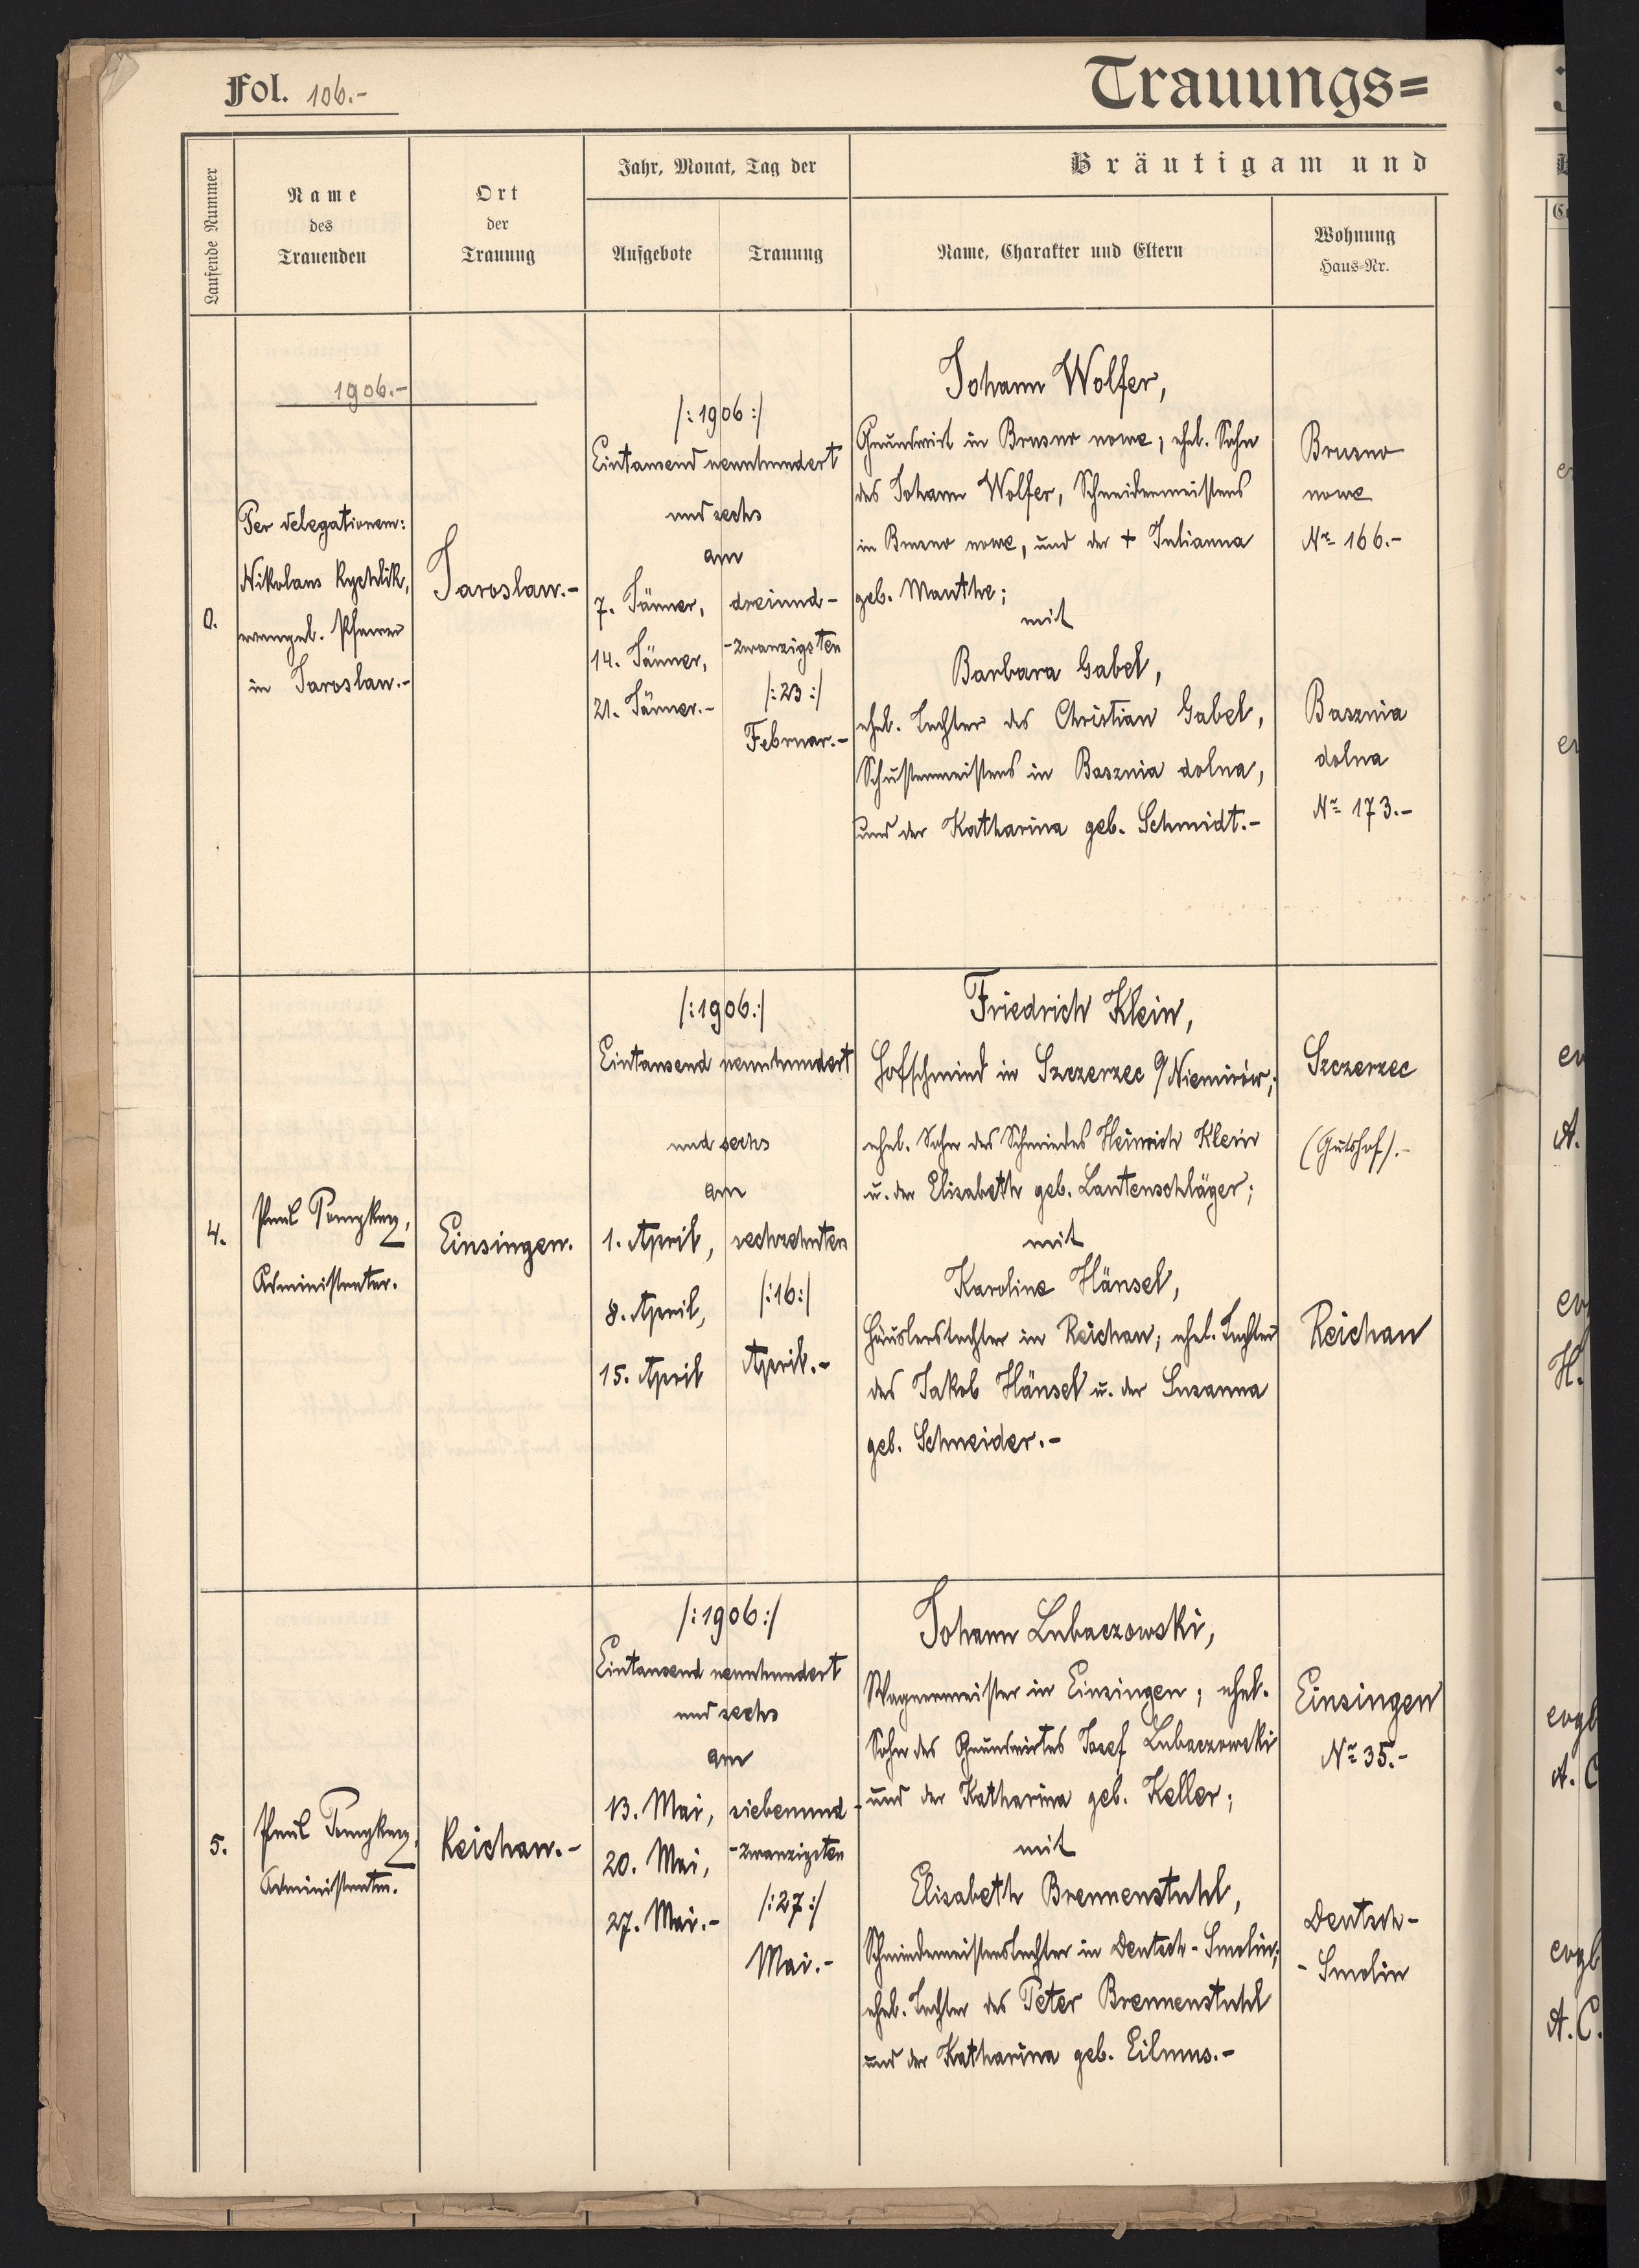 Fol. 106.-
Trauungs=
Laufende Nummer
Name
des
Trauenden
Ort
der
Trauung
Jahr, Monat, Tag der
Aufgebote
Trauung
Bräutigam und
Name, Charakter und Eltern
Wohnung
Haus=Nr.
1906.-
0.
Per delegationem:
Nikolaus Rychlik,
evangel. Pfarrer
in Jaroslau.-
Jaroslau.-
/:1906:/
Eintausend neunhundert
und sechs
am
7. Jänner,
14. Jänner,
21. Jänner.-
dreiund-
-zwanzigsten
/:23:/
Februar.-
Johann Wolfer,
Grundwirt in Brusno nowe; ehel. Sohn
des Johann Wolfer, Schneidermeisters
in Brusno nowe, und der + Julianna
geb. Manthe;
mit
Barbara Gabel,
ehel. Tochter des Christian Gabel,
Schustermeisters in Basznia dolna,
und der Katharina geb. Schmidt.-
Brusno
nowe
Nr 166.-
Basznia
dolna
Nr 173.-
4.
Paul
Administrator.
Einsingen.
/:1906:/
Eintausend neunhundert
und sechs
am
1. April,
8. April,
15. April
sechzehnten
/:16:/
April.-
Friedrich Klein,
Hofschmied in Szczerzec a/Niemirów;
ehel. Sohn des Schmiedes Heinrich Klein
u. der Elisabeth geb. Lautenschläger;
mit
Karoline Hänsel,
Häuslerstochter in Reichau; ehel. Tochter
des Jakob Hänsel u. der Susanna
geb. Schneider.-
Szczerzec
(Gutshof).-
Reichau
5.
Paul
Administrator.
Reichau.-
/:1906:/
Eintausend neunhundert
und sechs
am
13. Mai,
20. Mai,
27. Mai.-
siebenund-
-zwanzigsten
/:27:/
Mai.-
Johann Lubaczowski,
Wagnermeister in Einsingen; ehel.
Sohn des Grundwirtes Josef Lubaczowski
und der Katharina geb. Keller;
mit
Elisabeth Brennenstuhl,
Schmiedemeisterstochter in Deutsch-Smolin;
ehel. Tochter des Peter Brennenstuhl
und der Katharina geb. Eilmus.-
Einsingen
Nr 35.-
Deutsch-
-Smolin
A.
H.
evgl
A. C
evgl
A. C.